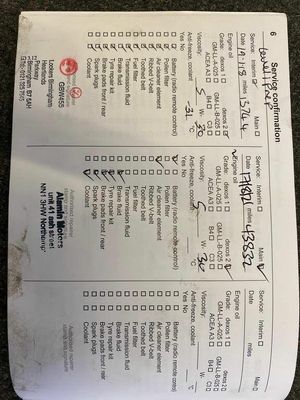 6
Service confirmation
Service: Interim Main
Date miles
Engine oil
Grade: dexos 1 dexos 2
GM-LL-A-025 GM-LL-B-025
ACEA A3 B4 C3
Viscosity: 5 W- 30
Anti-freeze, coolant -31 °C
Yes No
Battery (radio remote control)
Pollen filter
Air cleaner element
Ribbed V-belt
Toothed belt
Fuel filter
Transmission fluid
Brake fluid
Tyre repair kit
Brake pads front / rear
Spark plugs
Coolant
GBW455
Lookers Birmingham
Heartlands
Parkway
Birmingham
Service: Interim Main
Date miles
Engine oil
Grade: dexos 1 dexos 2
GM-LL-A-025 GM-LL-B-025
ACEA A3 B4 C3
Viscosity: 5 W- 30
Anti-freeze, coolant °C
Yes No
Battery (radio remote control)
Pollen filter
Air cleaner element
Ribbed V-belt
Toothed belt
Fuel filter
Transmission fluid
Brake fluid
Tyre repair kit
Brake pads front / rear
Spark plugs
Coolant
Motors
unit 41
NN1 3HW
Service: Interim Main
Date miles
Engine oil
Grade: dexos 1 dexos 2
GM-LL-A-025 GM-LL-B-025
ACEA A3 B4 C3
Viscosity: W-
Anti-freeze, coolant °C
Yes No
Battery (radio remote control)
Pollen filter
Air cleaner element
Ribbed V-belt
Toothed belt
Fuel filter
Transmission fluid
Brake fluid
Tyre repair kit
Brake pads front / rear
Spark plugs
Coolant
Authorised repairer
stamp and signature